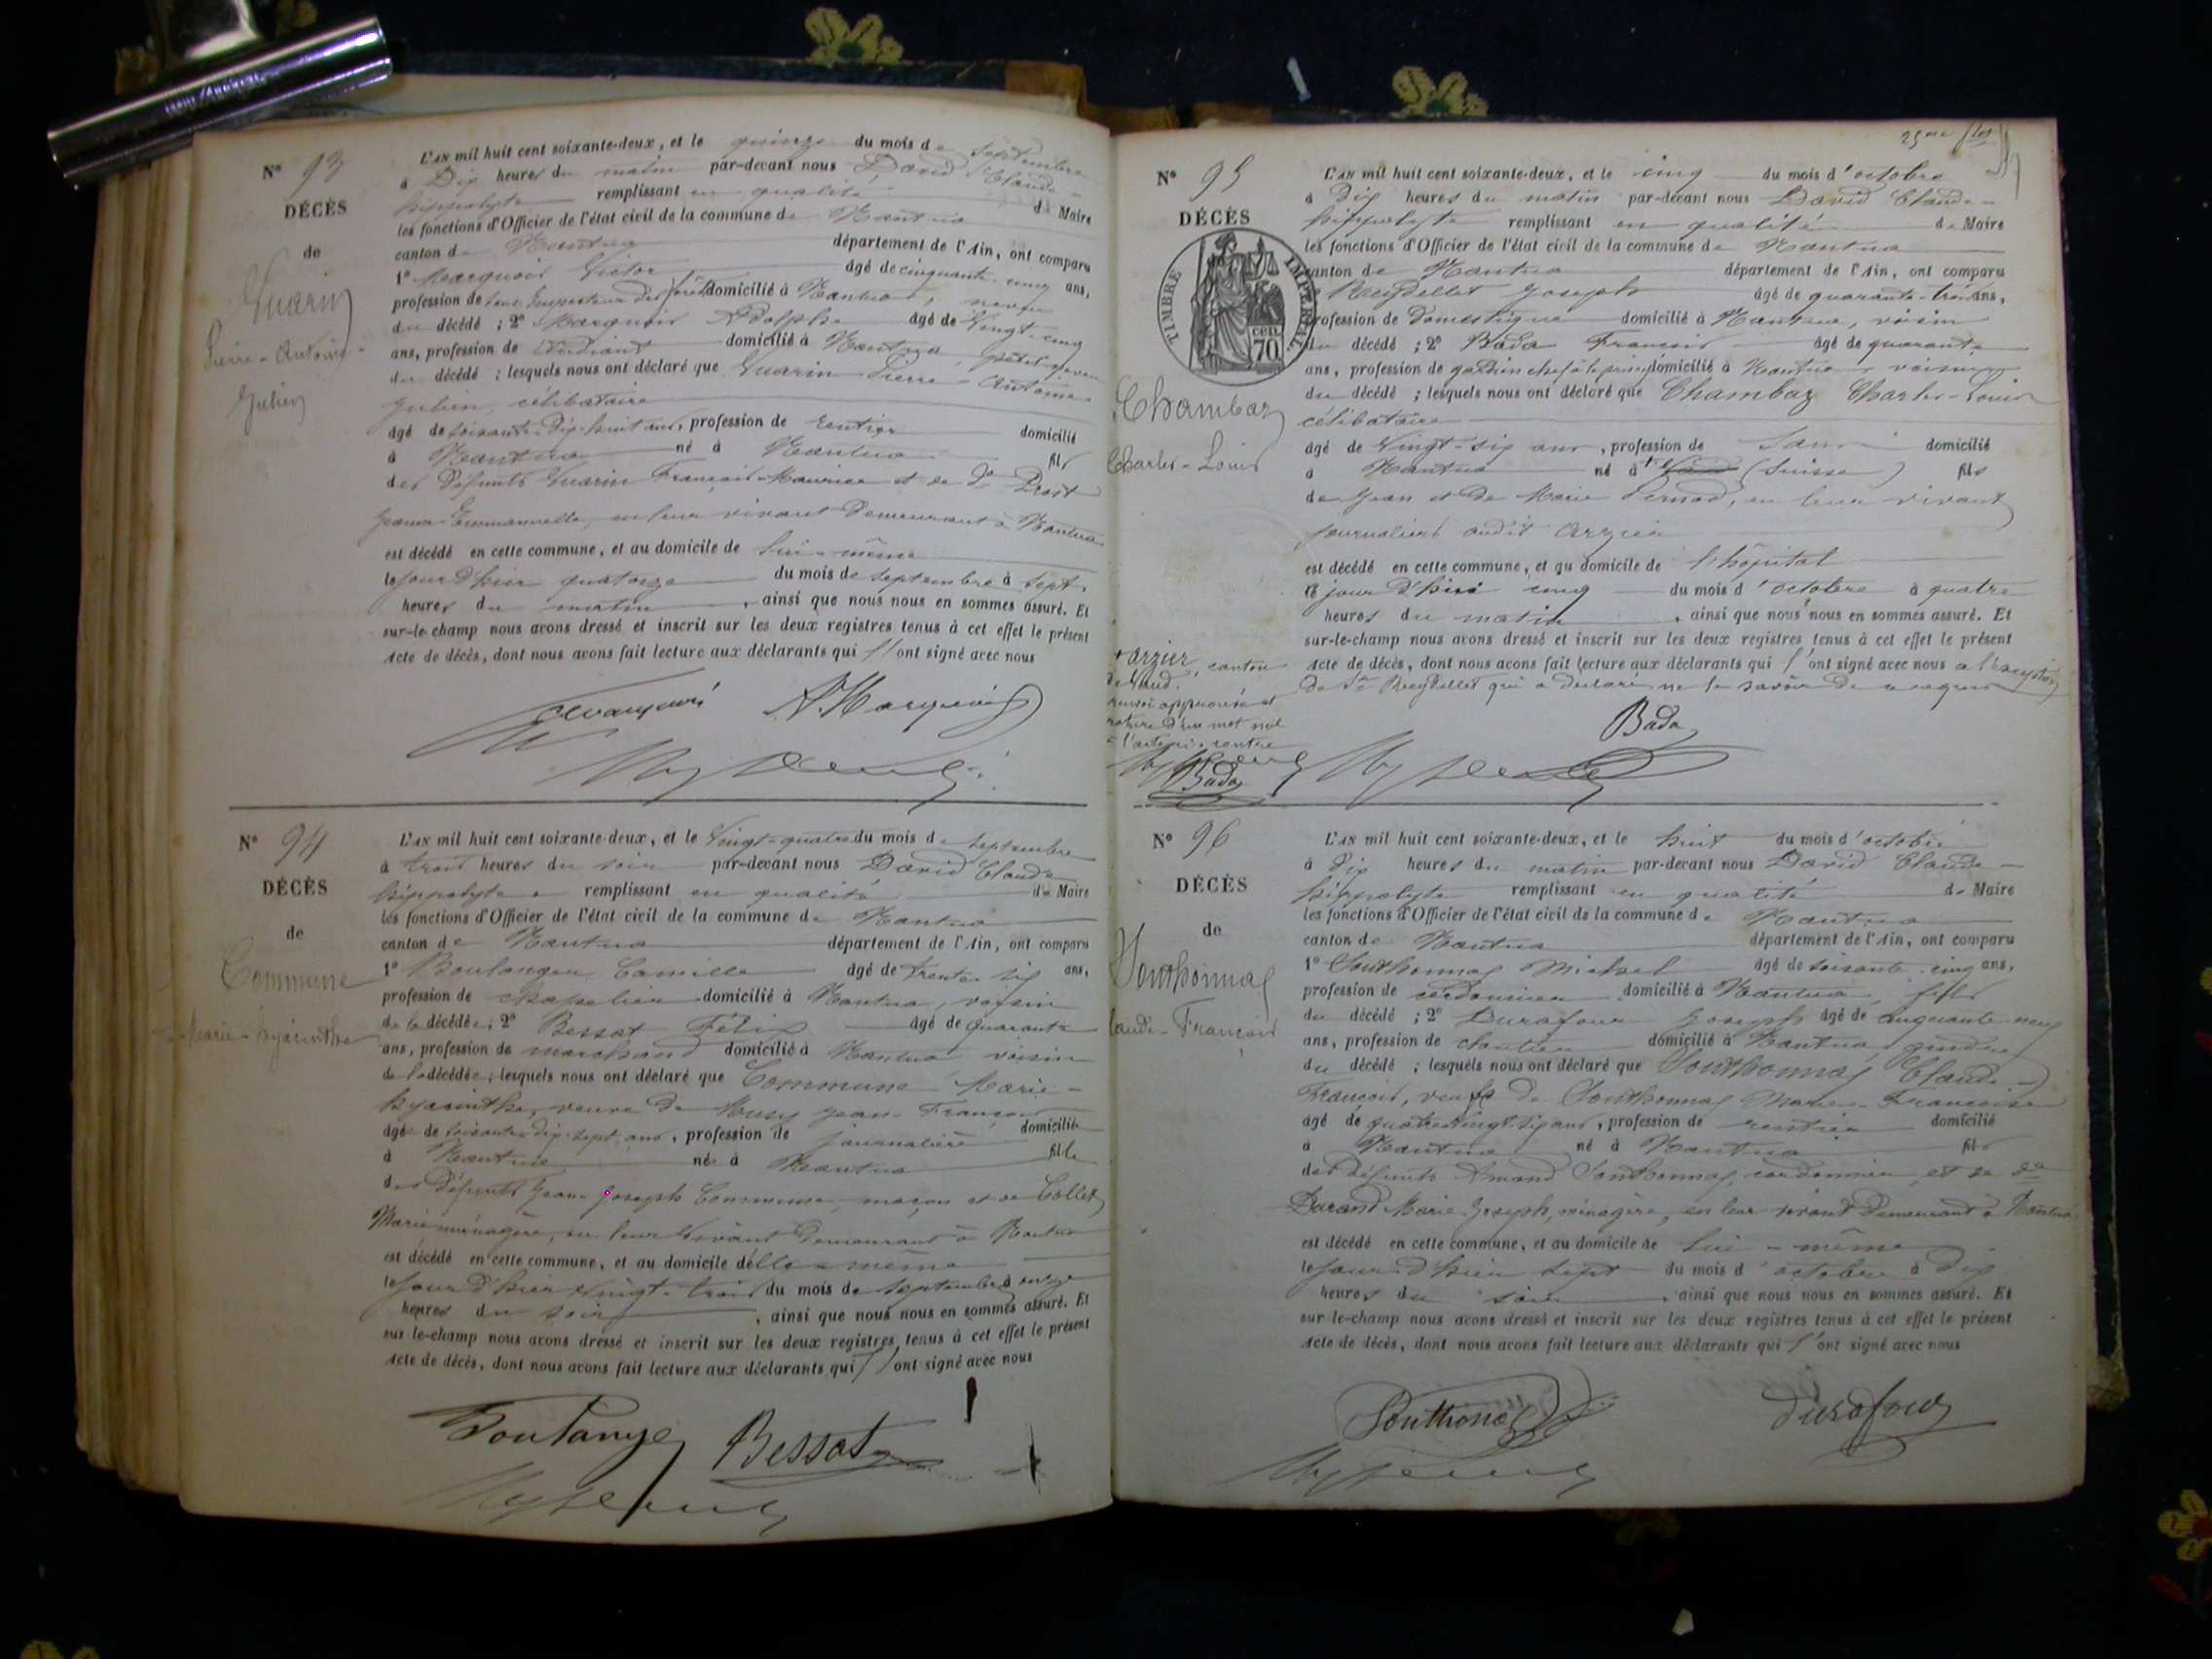 N° 93
DÉCÈS
de
Guarin
Pierre-Antoine-
Julien
L'AN mil huit cent soixante-deux, et le quinze du mois de Septembre
à Dix heures du matin par-devant nous David Claude-
hippolyte remplissant en qualité de Maire
les fonctions d'Officier de l'état civil de la commune de Nantua
canton de Nantua département de l'Ain, ont comparu
1° Marquois Victor âgé de cinquante-cinq ans,
profession de Sous Inspecteur des forêts domicilié à Nantua, neveu
du décédé ; 2° Marquois Adolphe âgé de Vingt-cinq
ans, profession de Etudiant domicilié à Nantua petit neveu
du décédé ; lesquels nous ont déclaré que Guarin Pierre-Antoine
Julien, célibataire
âgé de soixante-Dix-huit ans, profession de rentier domicilié
à Nantua né à Nantua fils
des défunts Guarin François-Maurice et de De Prost
Jeanne Emmanuelle, en leur vivant Demeurant à Nantua
est décédé en cette commune, et au domicile de lui-même
le jour d'hier quatorze du mois de Septembre à sept
heures du matin, ainsi que nous nous en sommes assuré. Et
sur-le-champ nous avons dressé et inscrit sur les deux registres tenus à cet effet le présent
Acte de décès, dont nous avons fait lecture aux déclarants qui l'ont signé avec nous
N° 94
DÉCÈS
de
Commune
Marie-hyacinthe
L'AN mil huit cent soixante-deux, et le Vingt-quatre du mois de Septembre
à trois heures du soir par-devant nous David Claude
hippolyte remplissant en qualité de Maire
les fonctions d'Officier de l'état civil de la commune de Nantua
canton de Nantua département de l'Ain, ont comparu
1° Boulanger Camille âgé de trente-six ans,
profession de chapelier domicilié à Nantua, voisin
de la décédée ; 2° Bessat Félix âgé de quarante
ans, profession de marchand domicilié à Nantua voisin
de la décédée ; lesquels nous ont déclaré que Commune Marie-
hyacinthe, veuve de Jean-François
âgée de soixante-dix-sept ans, profession de journalière domiciliée
à Nantua née à Nantua fille
des défunts Jean-Joseph Commune, maçon et de Collet
Marie ménagère, en leur vivant Demeurant à Nantua
est décédé en cette commune, et au domicile d'elle-même
le jour d'hier vingt-trois du mois de Septembre à onze
heures du soir, ainsi que nous nous en sommes assuré. Et
sur le-champ nous avons dressé et inscrit sur les deux registres tenus à cet effet le présent
Acte de décès, dont nous avons fait lecture aux déclarants qui l'ont signé avec nous
Boulanger Bessat
N° 95
DÉCÈS
TIMBRE IMPÉRIAL
70 cen.
Chambaz
Charles-Louis
L'AN mil huit cent soixante-deux, et le cinq du mois d'octobre
à Dix heures du matin par-devant nous David Claude-
hippolyte remplissant en qualité de Maire
les fonctions d'Officier de l'état civil de la commune de Nantua
canton de Nantua département de l'Ain, ont comparu
Reydellet Joseph âgé de quarante-trois ans,
profession de Domestique domicilié à Nantua, voisin
du décédé ; 2° Bada François âgé de quarante
ans, profession de gardien chef à la prison domicilié à Nantua voisin
du décédé ; lesquels nous ont déclaré que Chambaz Charles-Louis
célibataire
âgé de Vingt-six ans, profession de sans domicilié
à Nantua né à + (Suisse) fils
de Jean et de Marie Pernod, en leur vivant
journaliers audit Arzier
est décédé en cette commune, et au domicile de l'hôpital
le jour d'hui cinq du mois d'octobre à quatre
heures du matin, ainsi que nous nous en sommes assuré. Et
sur-le-champ nous avons dressé et inscrit sur les deux registres tenus à cet effet le présent
Acte de décès, dont nous avons fait lecture aux déclarants qui l'ont signé avec nous à l'exception
de Sr Reydellet qui a déclaré ne le savoir de ce requis
+ arzier, canton
de Vaud.
renvoi approuvé et
rature d'un mot nul
Bada
Bada
N° 96
DÉCÈS
de
Sonthonnax
Claude-François
L'AN mil huit cent soixante-deux, et le huit du mois d'octobre
à Dix heures du matin par-devant nous David Claude-
hippolyte remplissant en qualité de Maire
les fonctions d'Officier de l'état civil de la commune de Nantua
canton de Nantua département de l'Ain, ont comparu
1° Sonthonnax Michel âgé de soixante-cinq ans,
profession de cordonnier domicilié à Nantua, fils
du décédé ; 2° Durafour Joseph âgé de cinquante-neuf
ans, profession de domicilié à Nantua gendre
du décédé ; lesquels nous ont déclaré que Sonthonnax Claude-
François, veuf de Sonthonnax Marie-Françoise
âgé de quatre-Vingt-six ans, profession de rentier domicilié
à Nantua né à Nantua fils
des défunts Armand Sonthonnax, cordonnier, et de De
Durand Marie-Joseph, ménagère, en leur vivant Demeurant à Nantua
est décédé en cette commune, et au domicile de lui-même
le jour d'hier sept du mois d'octobre à dix
heures du soir, ainsi que nous nous en sommes assuré. Et
sur le-champ nous avons dressé et inscrit sur les deux registres tenus à cet effet le présent
Acte de décès, dont nous avons fait lecture aux déclarants qui l'ont signé avec nous
Sonthonax Durafour